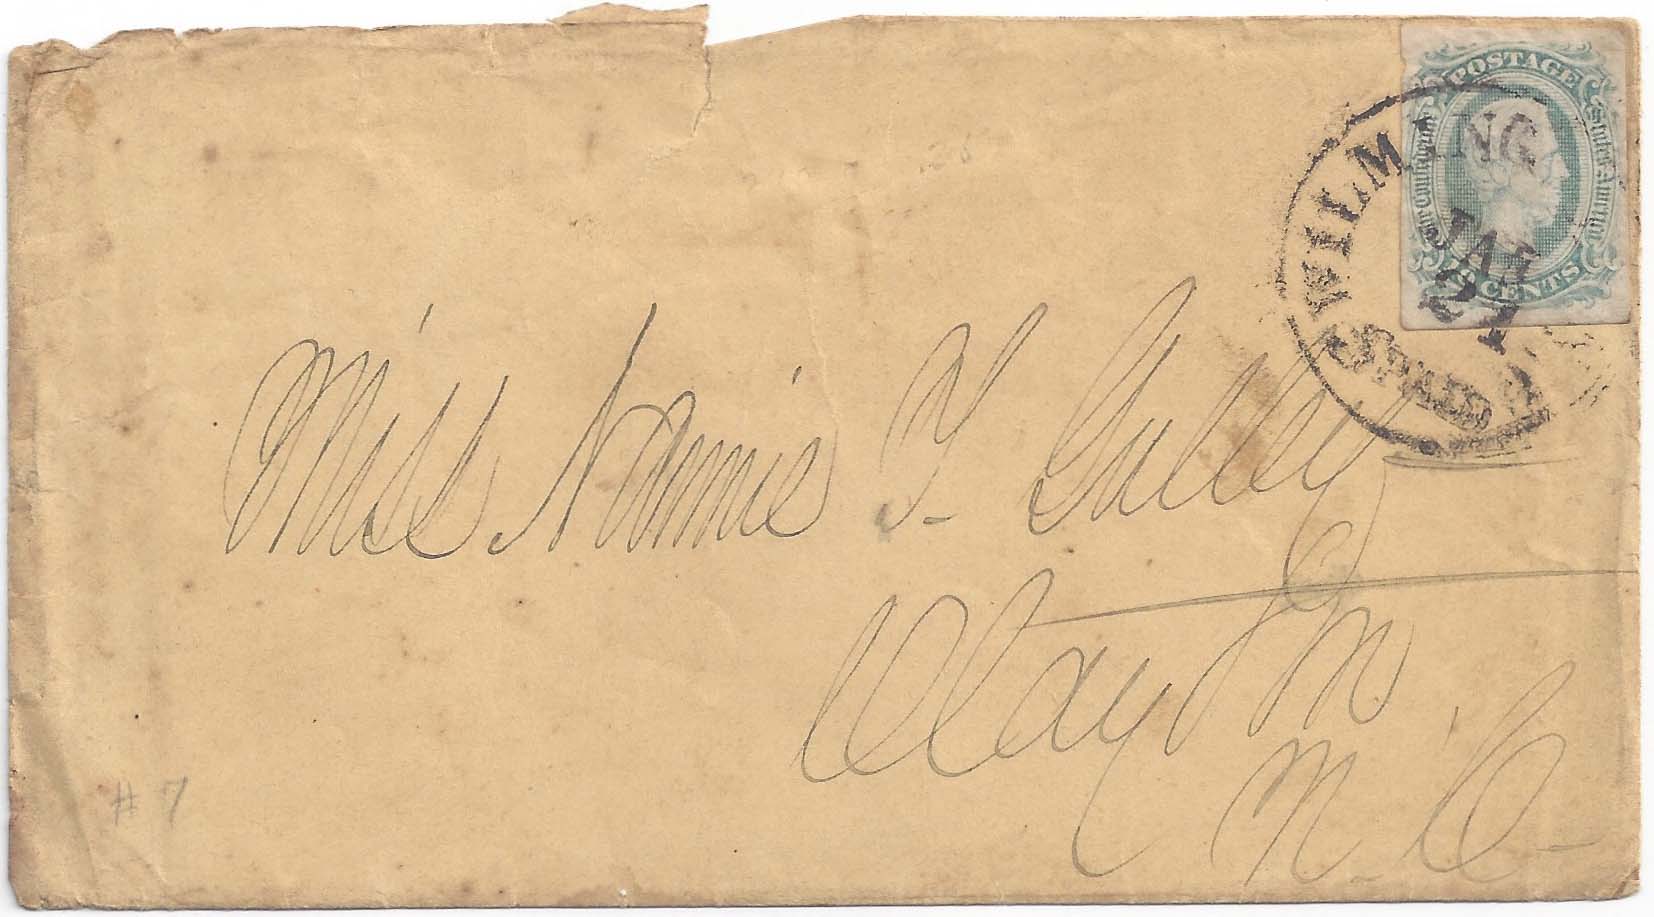 POSTAGE
The Confederate States of America
10 CENTS
WILMINGTON
JAN
21
PAID
Miss Nannie Y. Gulley
Clayton
N. C.
# 7